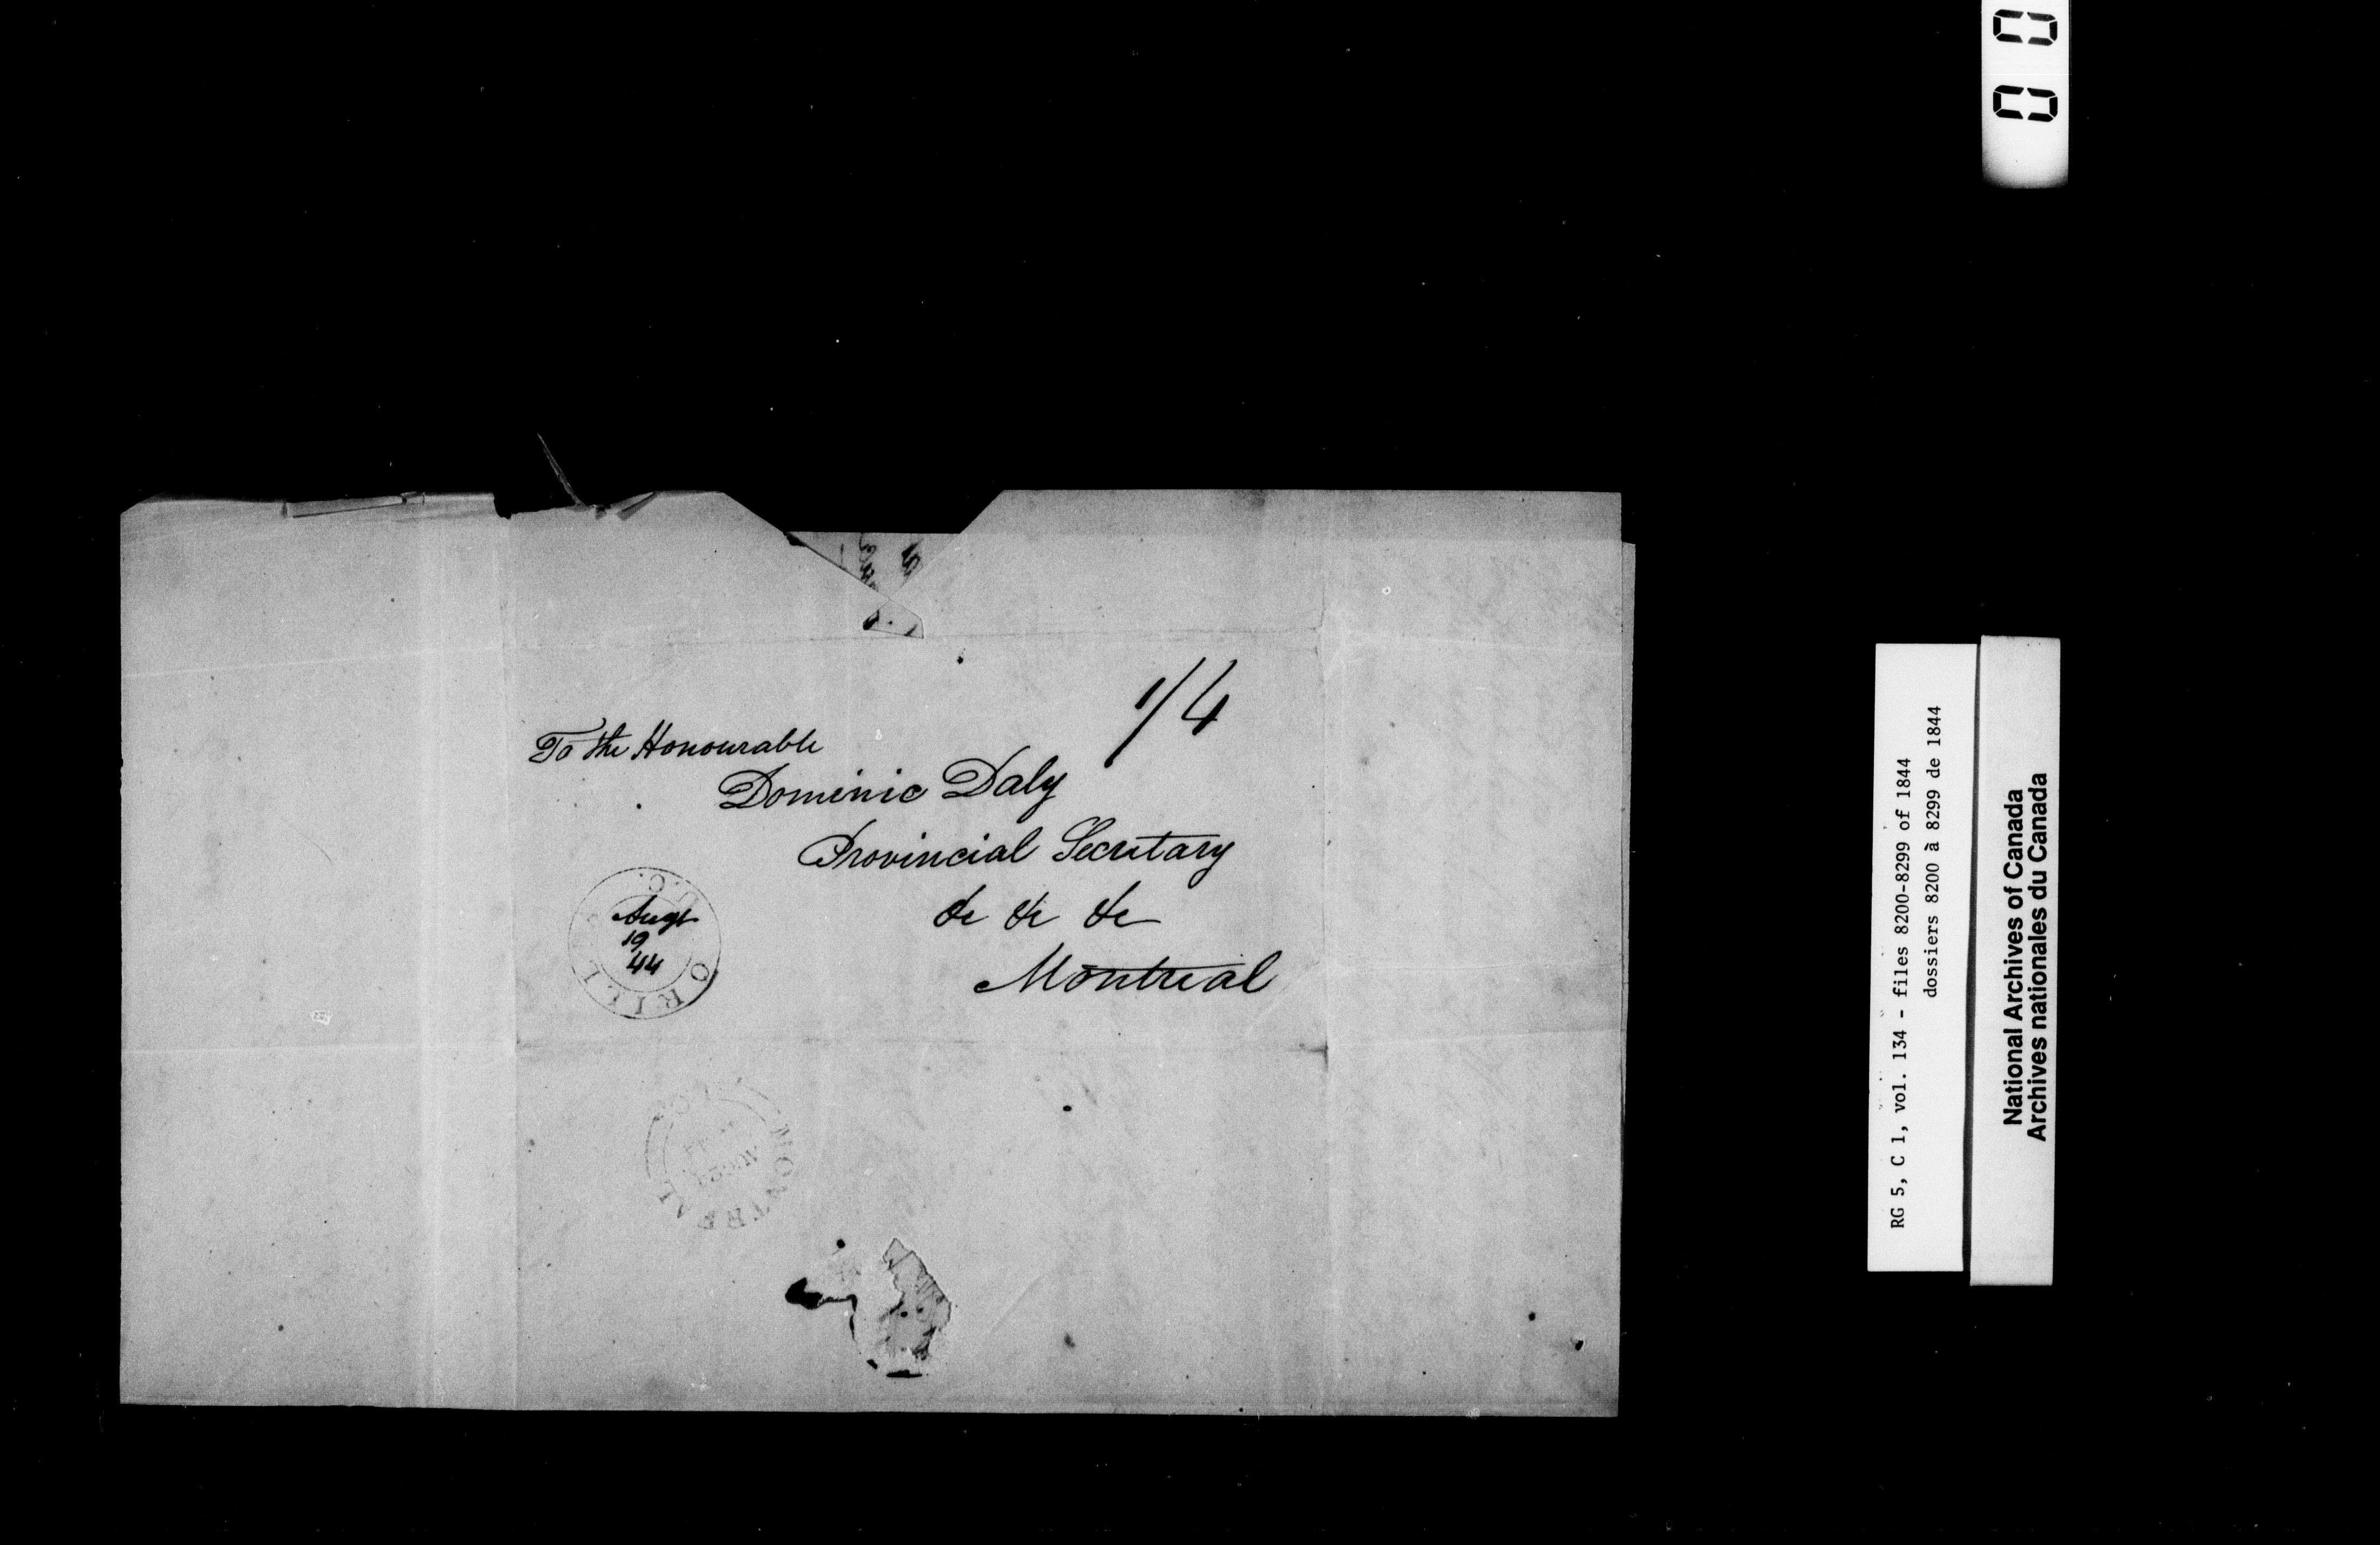 1/4
To the Honourable
Dominic Daly
Provincial Secretary
&c &c &c
Montreal
ORILLIA U.C.
Augt
19
44
MONTREAL
AU
RG 5, C 1, vol. 134 - files 8200-8299 of 1844
dossiers 8200 à 8299 de 1844
National Archives of Canada
Archives nationales du Canada
00